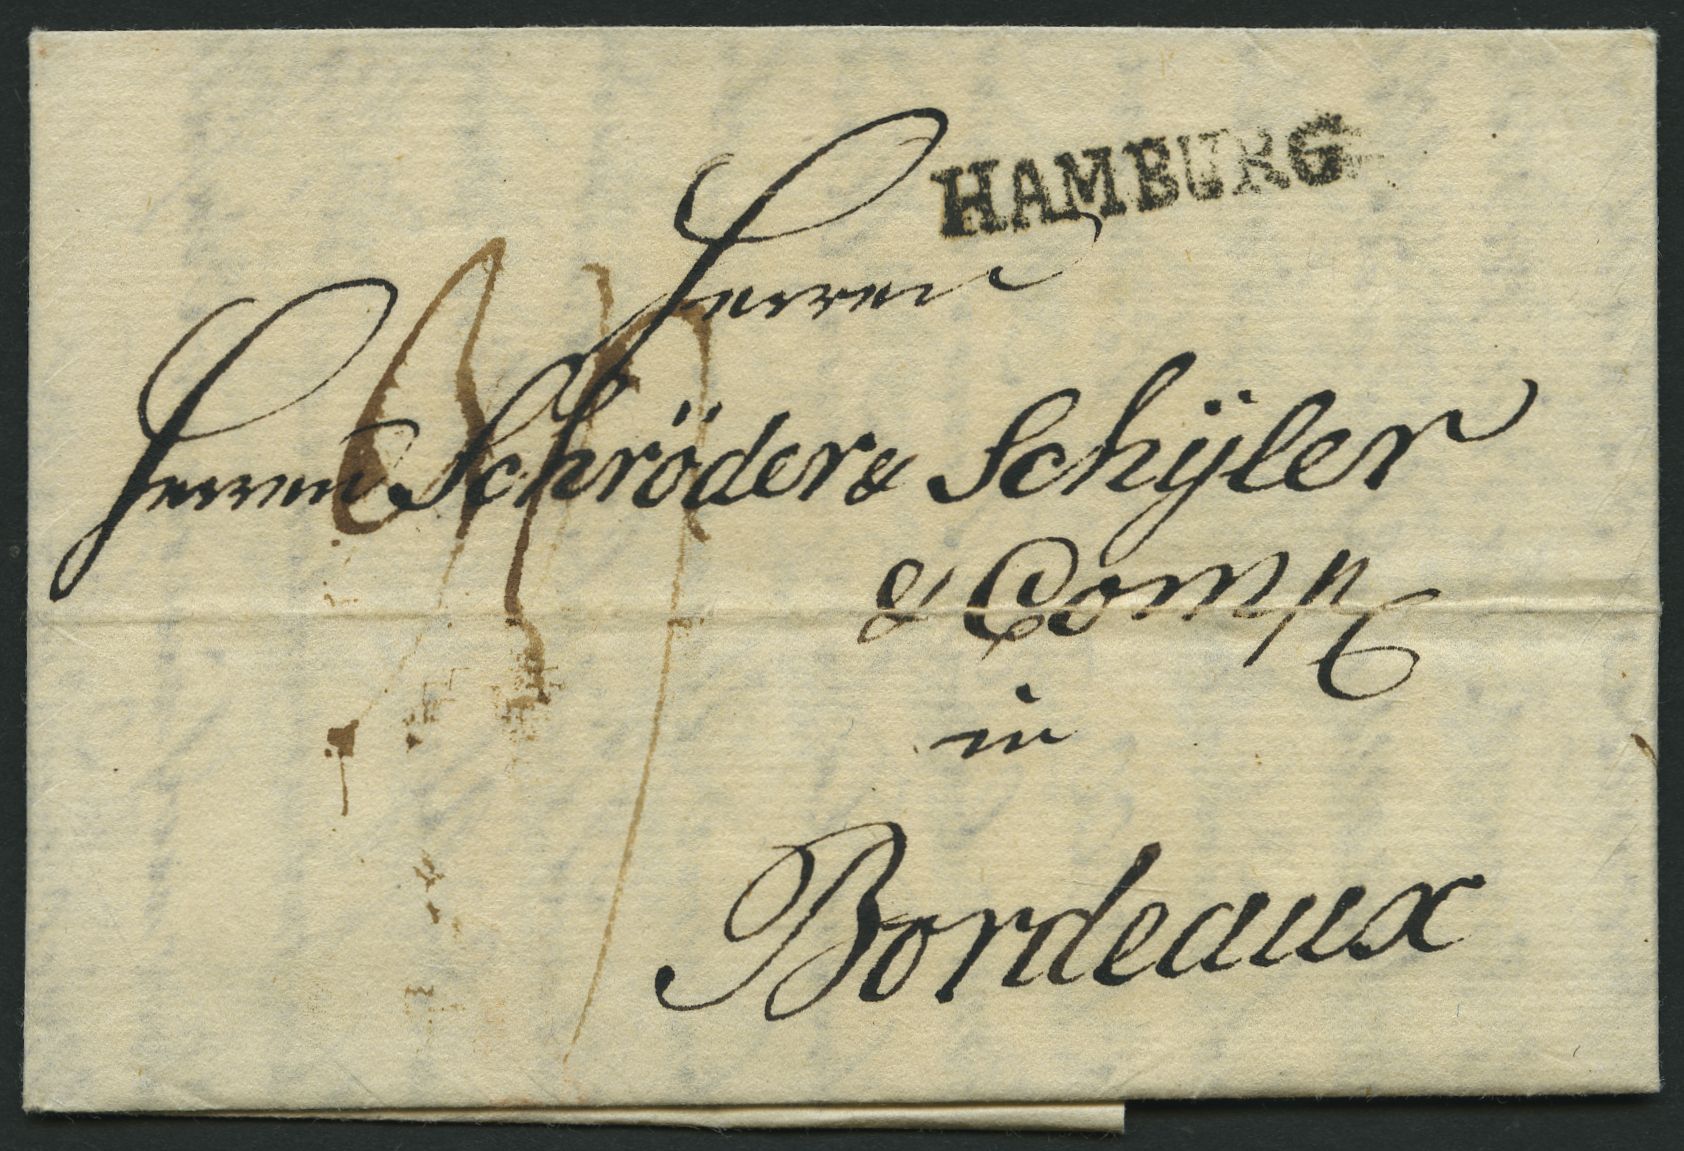 HAMBURG
Herren
Herren Schröder & Schÿler
& Comp
in
Bordeaux